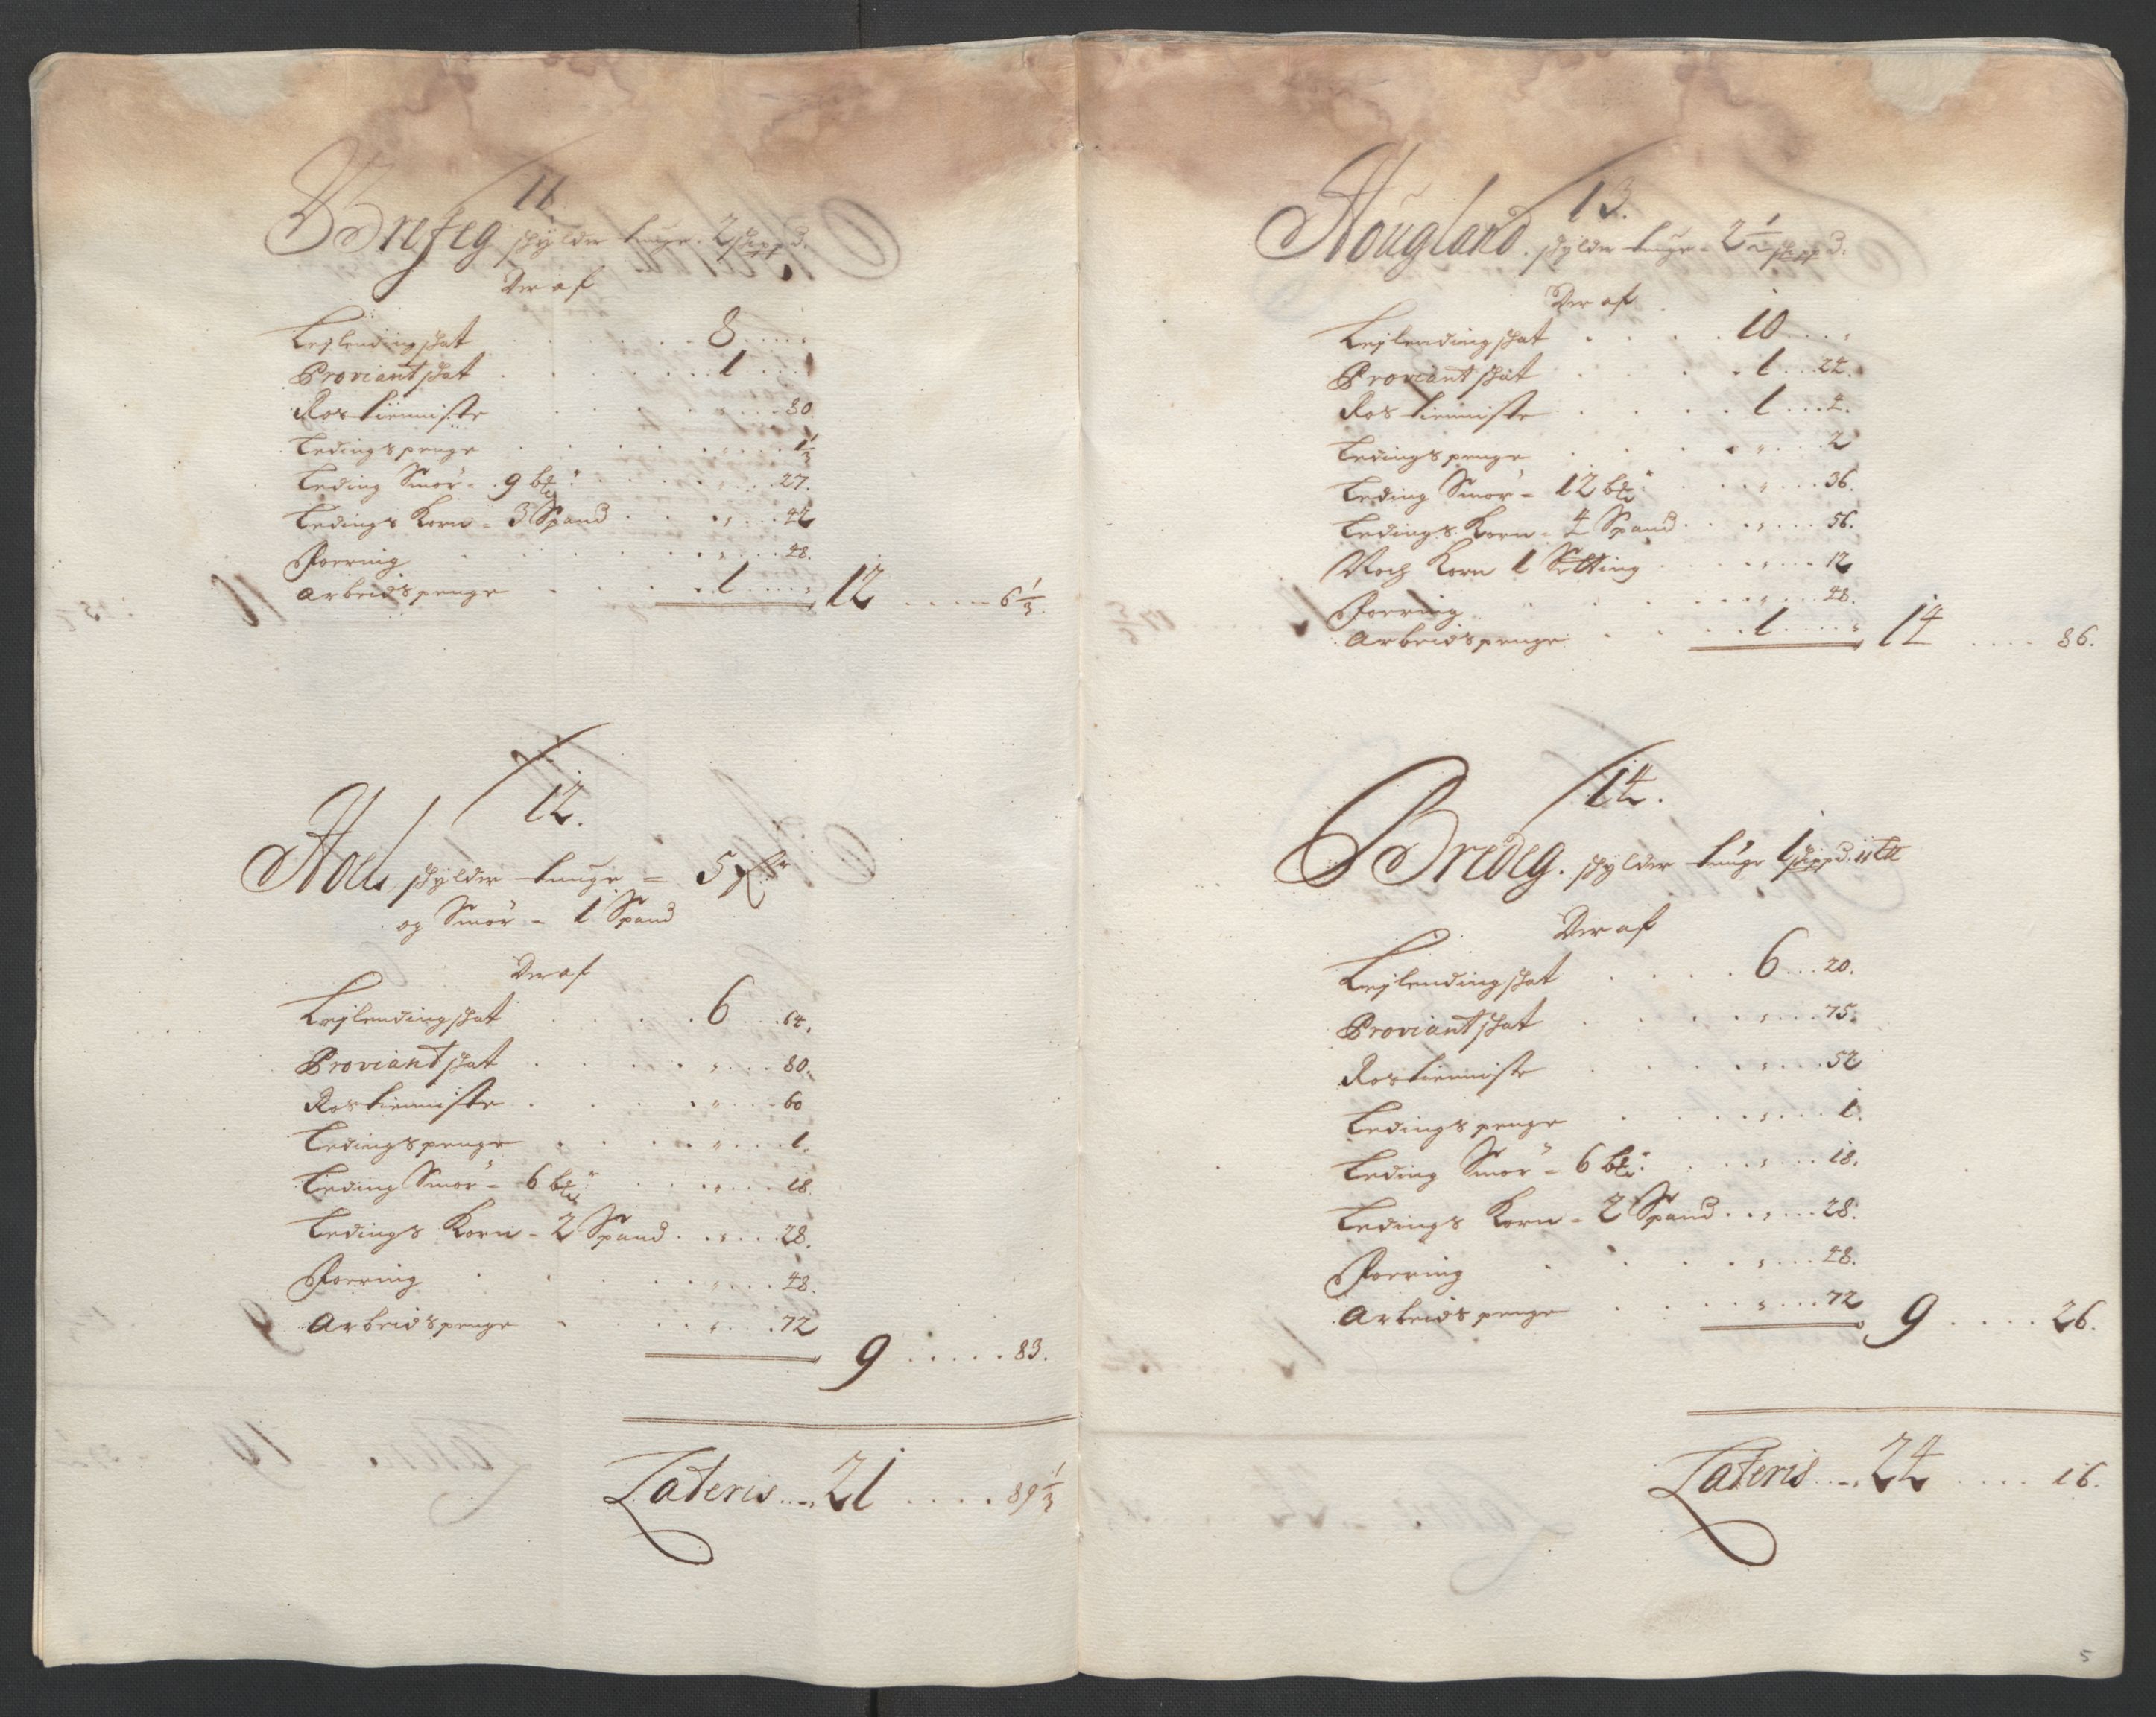 11.
Brefeg skylder tunge - 2 skippd.
Der af
Leylending skat . . . 8 . . . "
Proviant skat . . . 1 . . . "
Ros tienniste . . . " . . . 80.
Ledings penge . . . " . . . 1 1/3
Leding Smör - 9 btr: . . . " . . . 27.
Ledings Korn - 3 Spand . . . " . . . 42
Foering . . . " . . . 48.
Arbeids penge . . . 1 . . . " 12 . . . 6 1/3.
12.
Hoel skylder tunge = 5 fr
og Smör - 1 Spand
Der af
Leylending skat . . . 6 . . . 64.
Proviant skat . . . " . . . 80.
Ros tienniste . . . " . . . 60
Ledings penge . . . " . . . 1.
Leding Smör - 6 btr: . . . " . . . 18.
Ledings Korn - 2 Spand . . . " . . . 28.
Foering . . . " . . . 48.
Arbeids penge . . . " . . . 72
9 . . . 83.
Lateris . . 21 . . . 89 1/3
13.
Hougland. skylder tunge - 2 1/2 skippd.
Der af
Leylending skat . . . 10 . . . "
Proviant skat . . . 1 . . . 24.
Ros tienniste . . . 1 . . . 4.
Ledings penge . . . " . . . 2
Leding Smör - 12 btr: . . . " . . . 36.
Ledings Korn - 4 Spand . . . " . . . 56.
Noch Korn 1 Setting . . . " . . . 12
Foering . . . " . . . 48.
Arbeids penge . . . 1 . . . " 14 . . . 86.
14.
Bredeg. skylder tunge 1 skippd. 11 ltt
Der af
Leylending skat . . . 6 . . . 20.
Proviant skat . . . " . . . 75.
Ros tienniste . . . " . . . 52
Ledings penge . . . " . . . 1.
Leding Smör - 6 btr: . . . " . . . 18.
Ledings Korn - 2 Spand . . . " . . . 28.
Foering . . . " . . . 48.
Arbeids penge . . . " . . . 72 9 . . . 26.
Lateris . . 24 . . . 16.
5